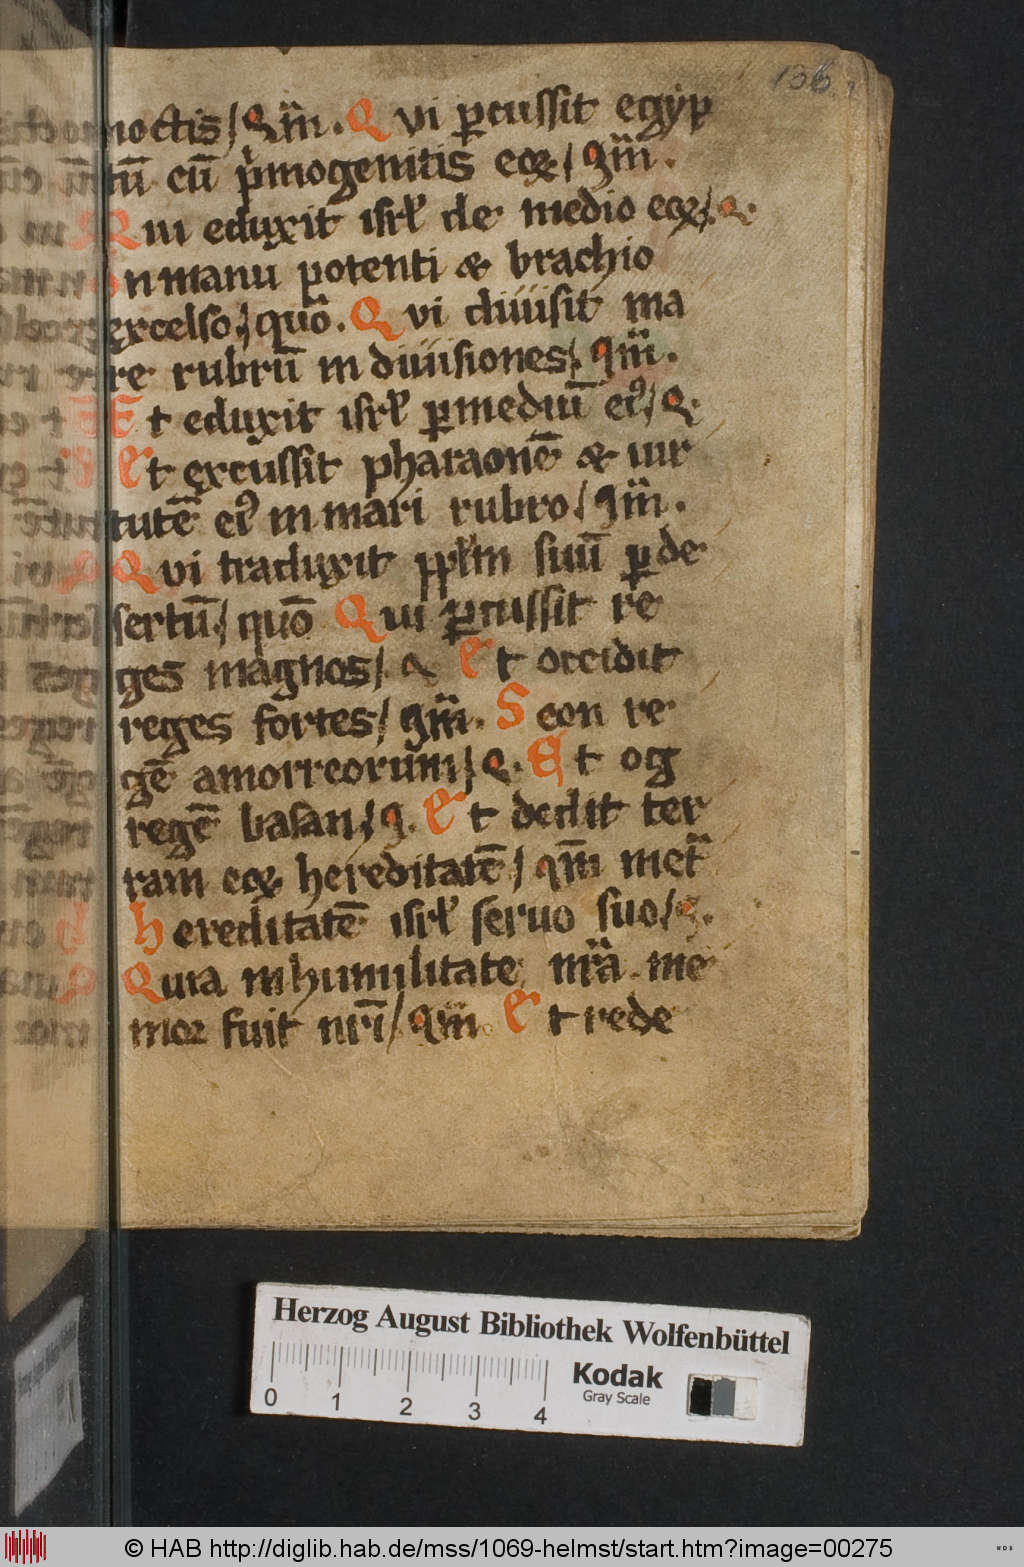 136
noctis / Qm̄. Qui ꝑcussit egyp
tū cū pͥmogenitis eoꝝ / qm̄.
Qui eduxit isrl̕ de medio eoꝝ / q.
In manu potenti & brachio
excelso / quō. Qui diuisit ma
re rubrū in diuisiones / qm̄.
Et eduxit isrl̕ ꝑ mediū eiꝰ / q.
Et excussit pharaonē & uir
tutē eiꝰ in mari rubro / qm̄.
Qui traduxit ppl̕m suū ꝑ de
sertū / quō Qui ꝑcussit re
ges magnos / q Et occidit
reges fortes / qm̄. Seon re
gē amorreorum / q. Et og
regē basan / q. Et dedit ter
ram eoꝝ hereditatē / qm̄ in et̕
hereditatē isrl̕ seruo suo / q.
Quia in humilitate nr̄a me
moꝛ fuit nr̄i / qm̄ Et rede
Herzog August Bibliothek Wolfenbüttel
Kodak
Gray Scale
0 1 2 3 4
© HAB http://diglib.hab.de/mss/1069-helmst/start.htm?image=00275